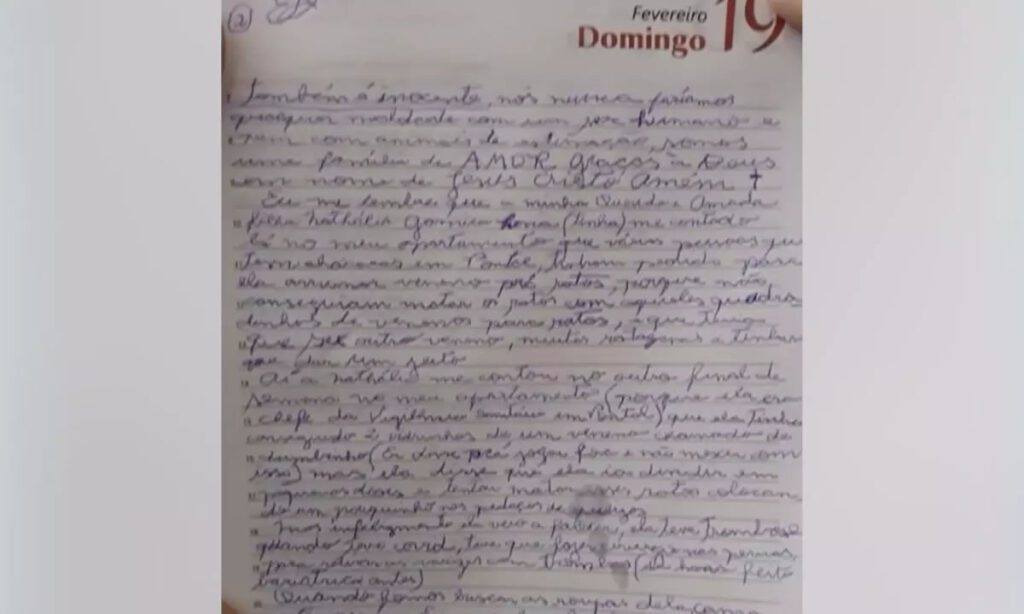 2
Fevereiro
Domingo 19
também é inocente, nós nunca faríamos
qualquer maldade com um ser humano e
nem com animais de estimação, somos
uma família de AMOR graças à Deus
em nome de Jesus Cristo Amém †
Eu me lembro que a minha Querida e Amada
filha Nathália Garnica (tinha) me contado
lá no meu apartamento que várias pessoas que
tem chácaras em Pontal, tinham pedido para
ela arrumar veneno prá ratos, porque não
conseguiam matar os ratos com aqueles quadra
dinhos de venenos para ratos, e que
que ser outro veneno, muitos e tinham
que dar um jeito
Aí a Nathália me contou no outro final de
semana no meu apartamento (porque ela era
chefe da Vigilância Sanitária em Pontal) que ela tinha
conseguido 2 vidrinhos de um veneno chamado de
chumbinho (Eu disse prá jogar fora e não mexer com
isso) mas ela disse que ela ia dividir em
pequenas doses e tentar matar esses ratos colocan
do um pouquinho nos pedaços de queijos
Mas infelizmente ela veio a falecer, ela teve trombose
quando teve covid, teve que fazer cirurgia nas pernas,
para as varizes com trombos (já havia feito
bariátrica antes)
Quando fomos buscar as roupas dela